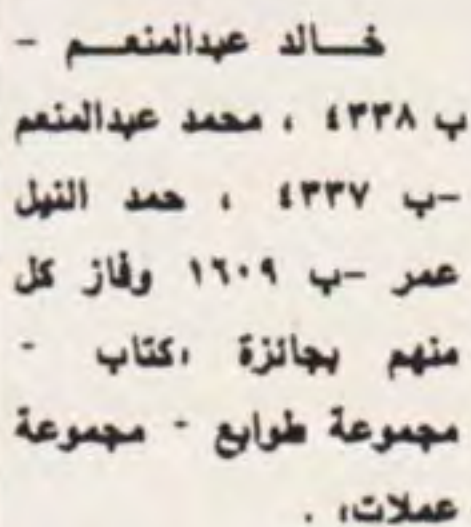 خــالد عبدالمنعــم -
ب ٤٣٣٨ ، محمد عبدالمنعم
-ب ٤٣٣٧ ، حمد النيل
عمر -ب ١٦٠٩ وفاز كل
منهم بجائزة ،كتاب -
مجموعة طوابع - مجموعة
عملات، .